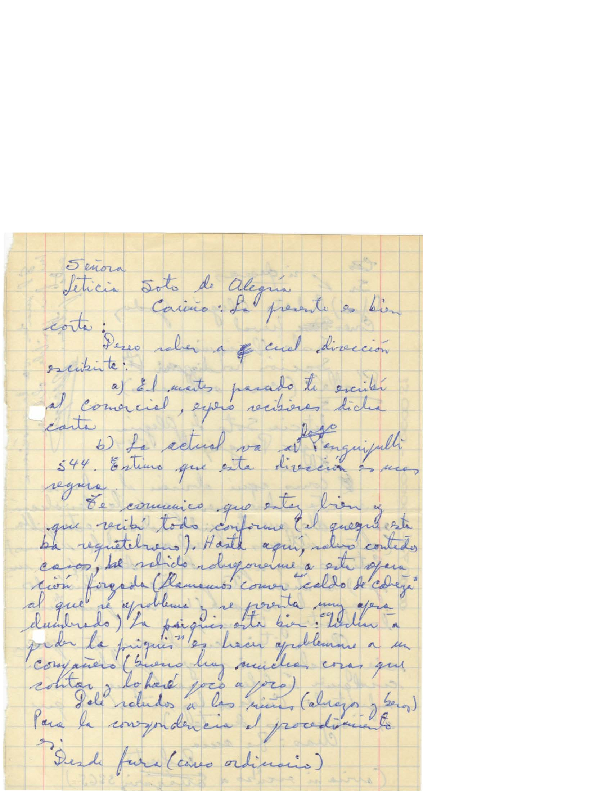 Señora
Leticia Soto de Alegría
Cariño: La presente es bien
corta:
Deseo saber a cual dirección
escribirte:
a) El martes pasado te escribí
al comercial, espero recibieras dicha
carta
b) La actual va al Lago Panguipulli
544. Estimo que esta dirección es mas
segura
Te comunico que estoy bien y
que recibí todo conforme (el queque esta
ba requetebueno). Hasta aquí, salvo contados
casos, he sabido sobreponerme a esta opera
ción forzada (llamamos comer "caldo de cabeza"
al que se aproblema y se presenta muy apesa
dumbrado) La psiquis esta bien:
gordar la psiquis" es hacer aproblemarse a un
compañero (bueno hay muchas cosas que
contar y lo haré poco a poco)
Dale saludos a las niñas (abrazos y besos)
Para la correspondencia el procedimiento
es:
Desde fuera (caso ordinario)